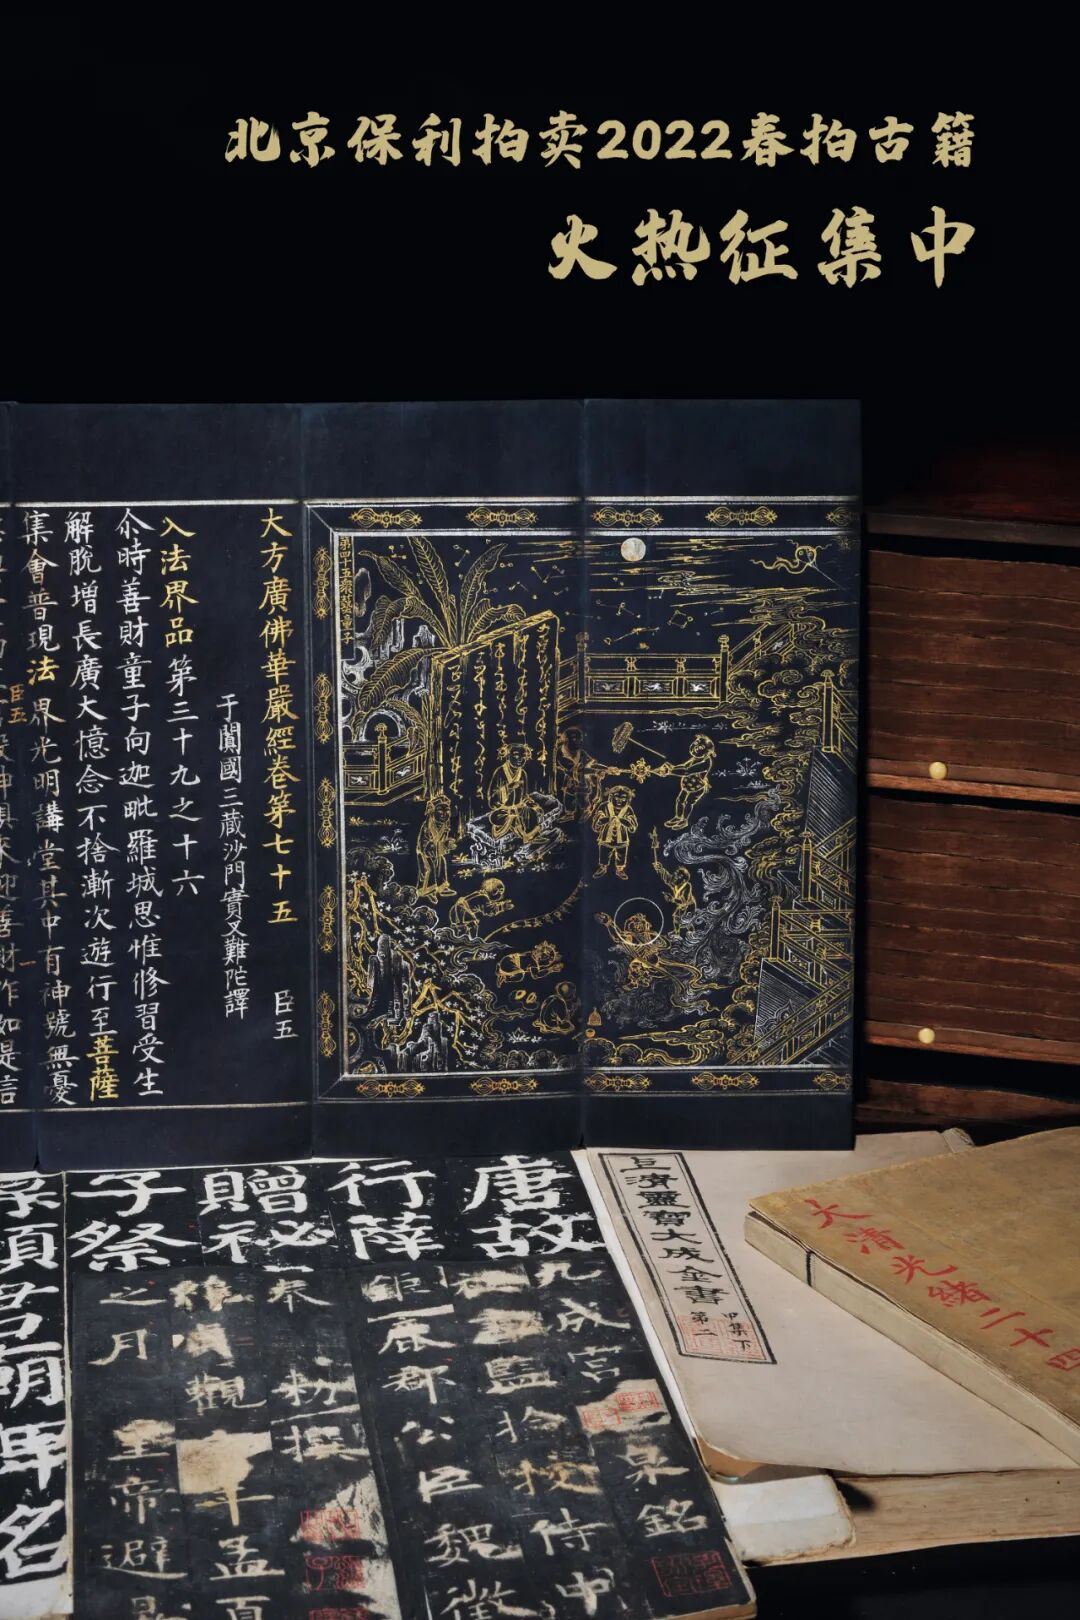 北京保利拍卖2022春拍古籍
火热征集中
第四十五衆藝童子
大方廣佛華嚴經卷第七十五
臣五
于闐國三藏沙門實叉難陀譯
入法界品第三十九之十六
尒時善財童子向迦毗羅城思惟修習受生
解脫增長廣大憶念不捨漸次遊行至菩薩
集會普現法界光明講堂其中有神號無憂
臣五
唐故
行薛
贈祕
子祭
上清靈寶大成金書
甲集下
第二
大清光緒二十四
九成宮
泉銘
監撿挍侍中
鉅鹿郡公臣魏徵
奉
勑撰
維貞觀
年孟夏
之月
皇帝避